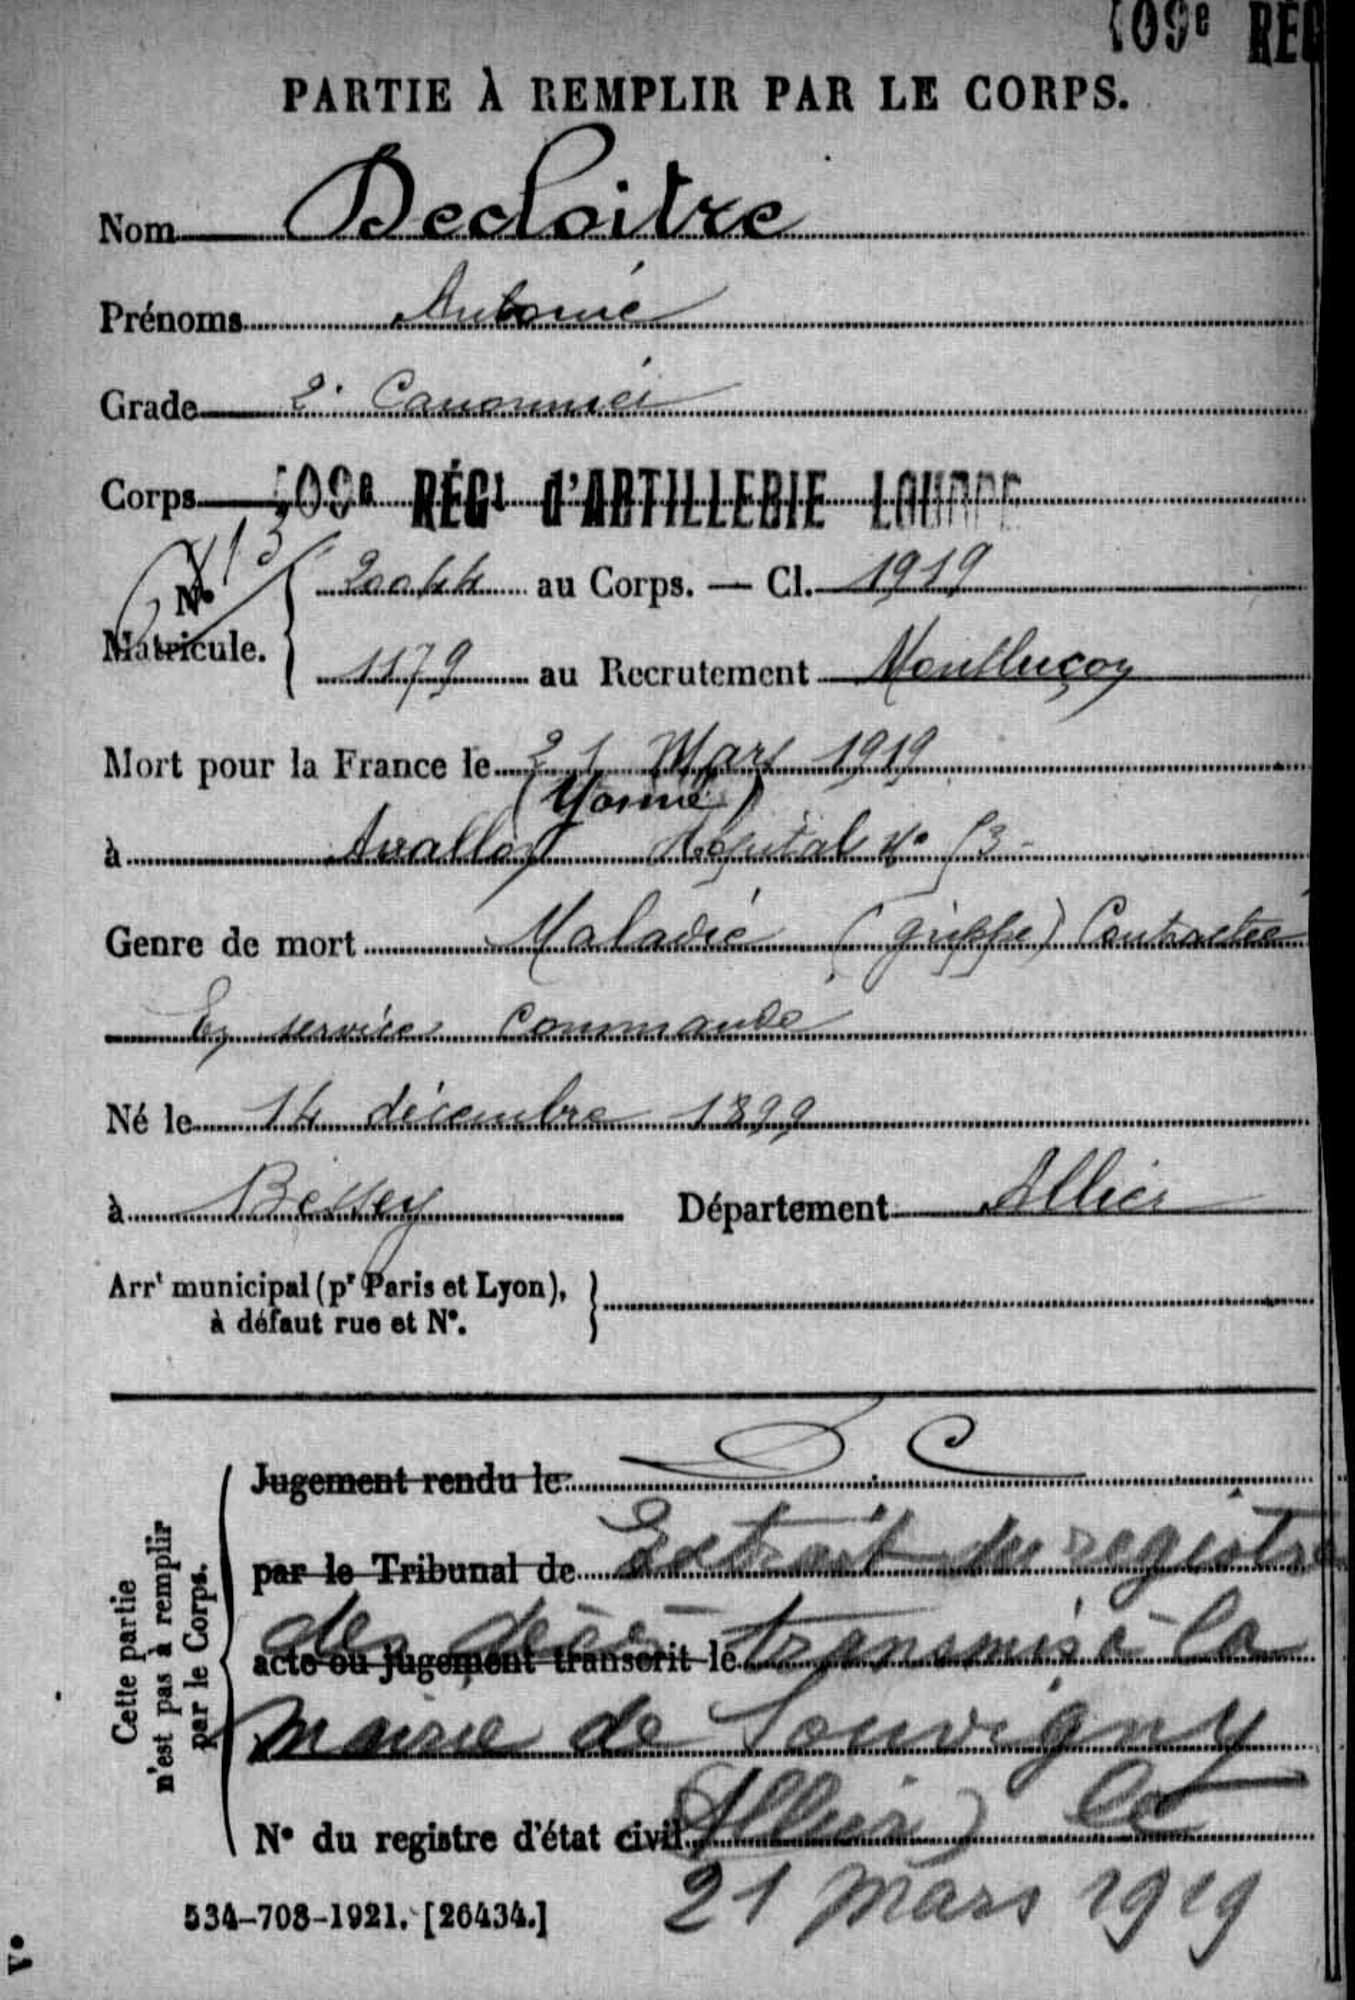 109e RÉG
PARTIE À REMPLIR PAR LE CORPS.
Nom Decloitre
Prénoms Antoine
Grade 2e Canonnier
Corps 109e RÉGt d'ARTILLERIE LOURDE
No Matricule. 20044 au Corps. — Cl. 1919
1179 au Recrutement Montluçon
Mort pour la France le 21 Mars 1919
(Yonne)
à Avallon Hôpital No 53
Genre de mort Maladie (grippe) Contractée
En service Commandé
Né le 14 décembre 1899
à Bessey Département Allier
Arrt municipal (pr Paris et Lyon),
à défaut rue et No.
Cette partie
n'est pas à remplir
par le Corps.
Jugement rendu le
par le Tribunal de Extrait du registre
acte ou jugement transcrit le
des décès transmis à la
mairie de Souvigny
No du registre d'état civil (Allier) le
21 mars 1919
534-708-1921. [26434.]